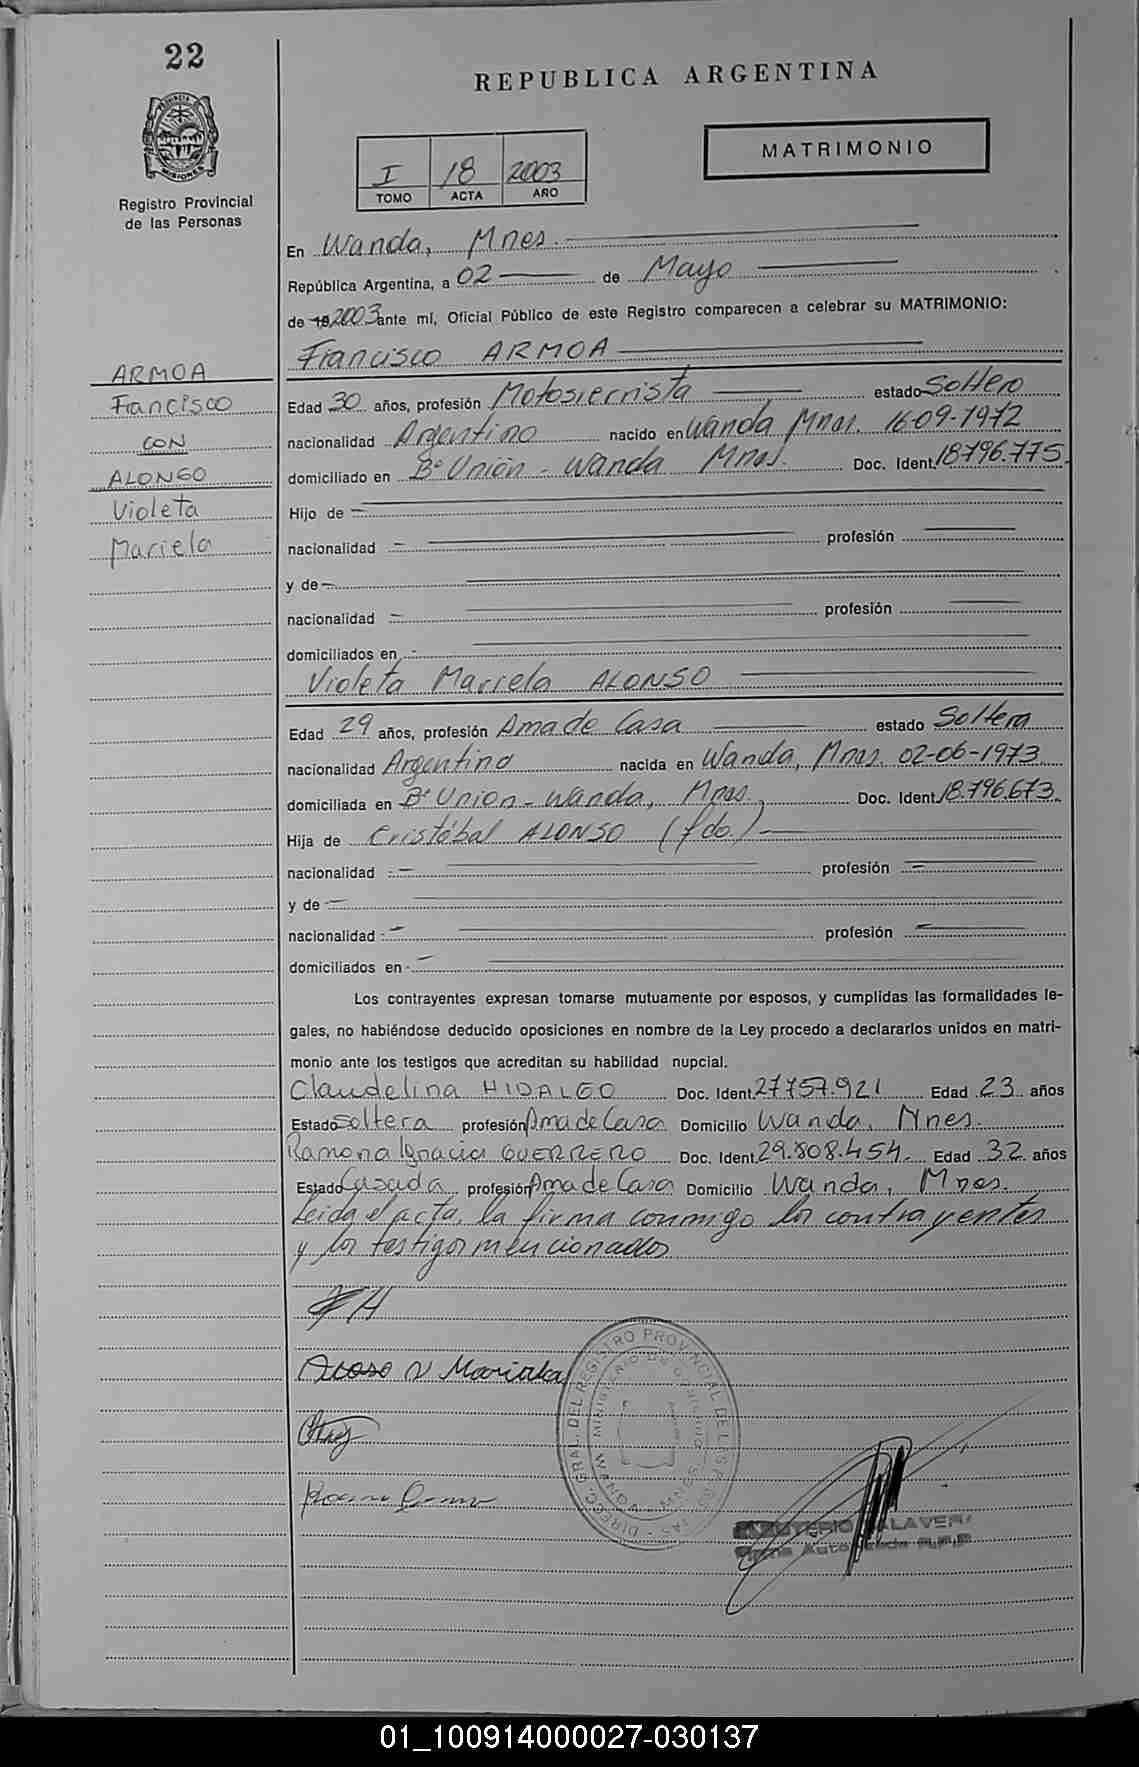 22
REPUBLICA ARGENTINA
MATRIMONIO
I 18 2003
TOMO ACTA AÑO
Registro Provincial
de las Personas
En Wanda, Mnes.
República Argentina, a 02 de Mayo
de 19 2003 ante mí, Oficial Público de este Registro comparecen a celebrar su MATRIMONIO:
Francisco ARMOA
ARMOA
Francisco
CON
ALONSO
Violeta
Mariela
Edad 30 años, profesión Motosierrista estado Soltero
nacionalidad Argentino nacido en Wanda Mnes. 16-09-1972
domiciliado en B° Unión - Wanda Mnes. Doc. Ident. 18.796.775.
Hijo de
nacionalidad profesión
y de
nacionalidad profesión
domiciliados en
Violeta Mariela ALONSO
Edad 29 años, profesión Ama de Casa estado Soltera
nacionalidad Argentina nacida en Wanda, Mnes. 02-06-1973
domiciliada en B° Union - Wanda, Mnes. Doc. Ident. 18.796.673.
Hija de Cristóbal ALONSO (fdo.)
nacionalidad profesión
y de
nacionalidad profesión
domiciliados en
Los contrayentes expresan tomarse mutuamente por esposos, y cumplidas las formalidades le-
gales, no habiéndose deducido oposiciones en nombre de la Ley procedo a declararlos unidos en matri-
monio ante los testigos que acreditan su habilidad nupcial.
Claudelina HIDALGO Doc. Ident. 27.757.921 Edad 23 años
Estado Soltera profesión Ama de Casa Domicilio Wanda, Mnes.
Ramona Ignacia GUERRERO Doc. Ident. 29.808.454. Edad 32 años
Estado Casada profesión Ama de Casa Domicilio Wanda, Mnes.
Leida el acta, la firma conmigo los contrayentes
y los testigos mencionados
01_100914000027-030137